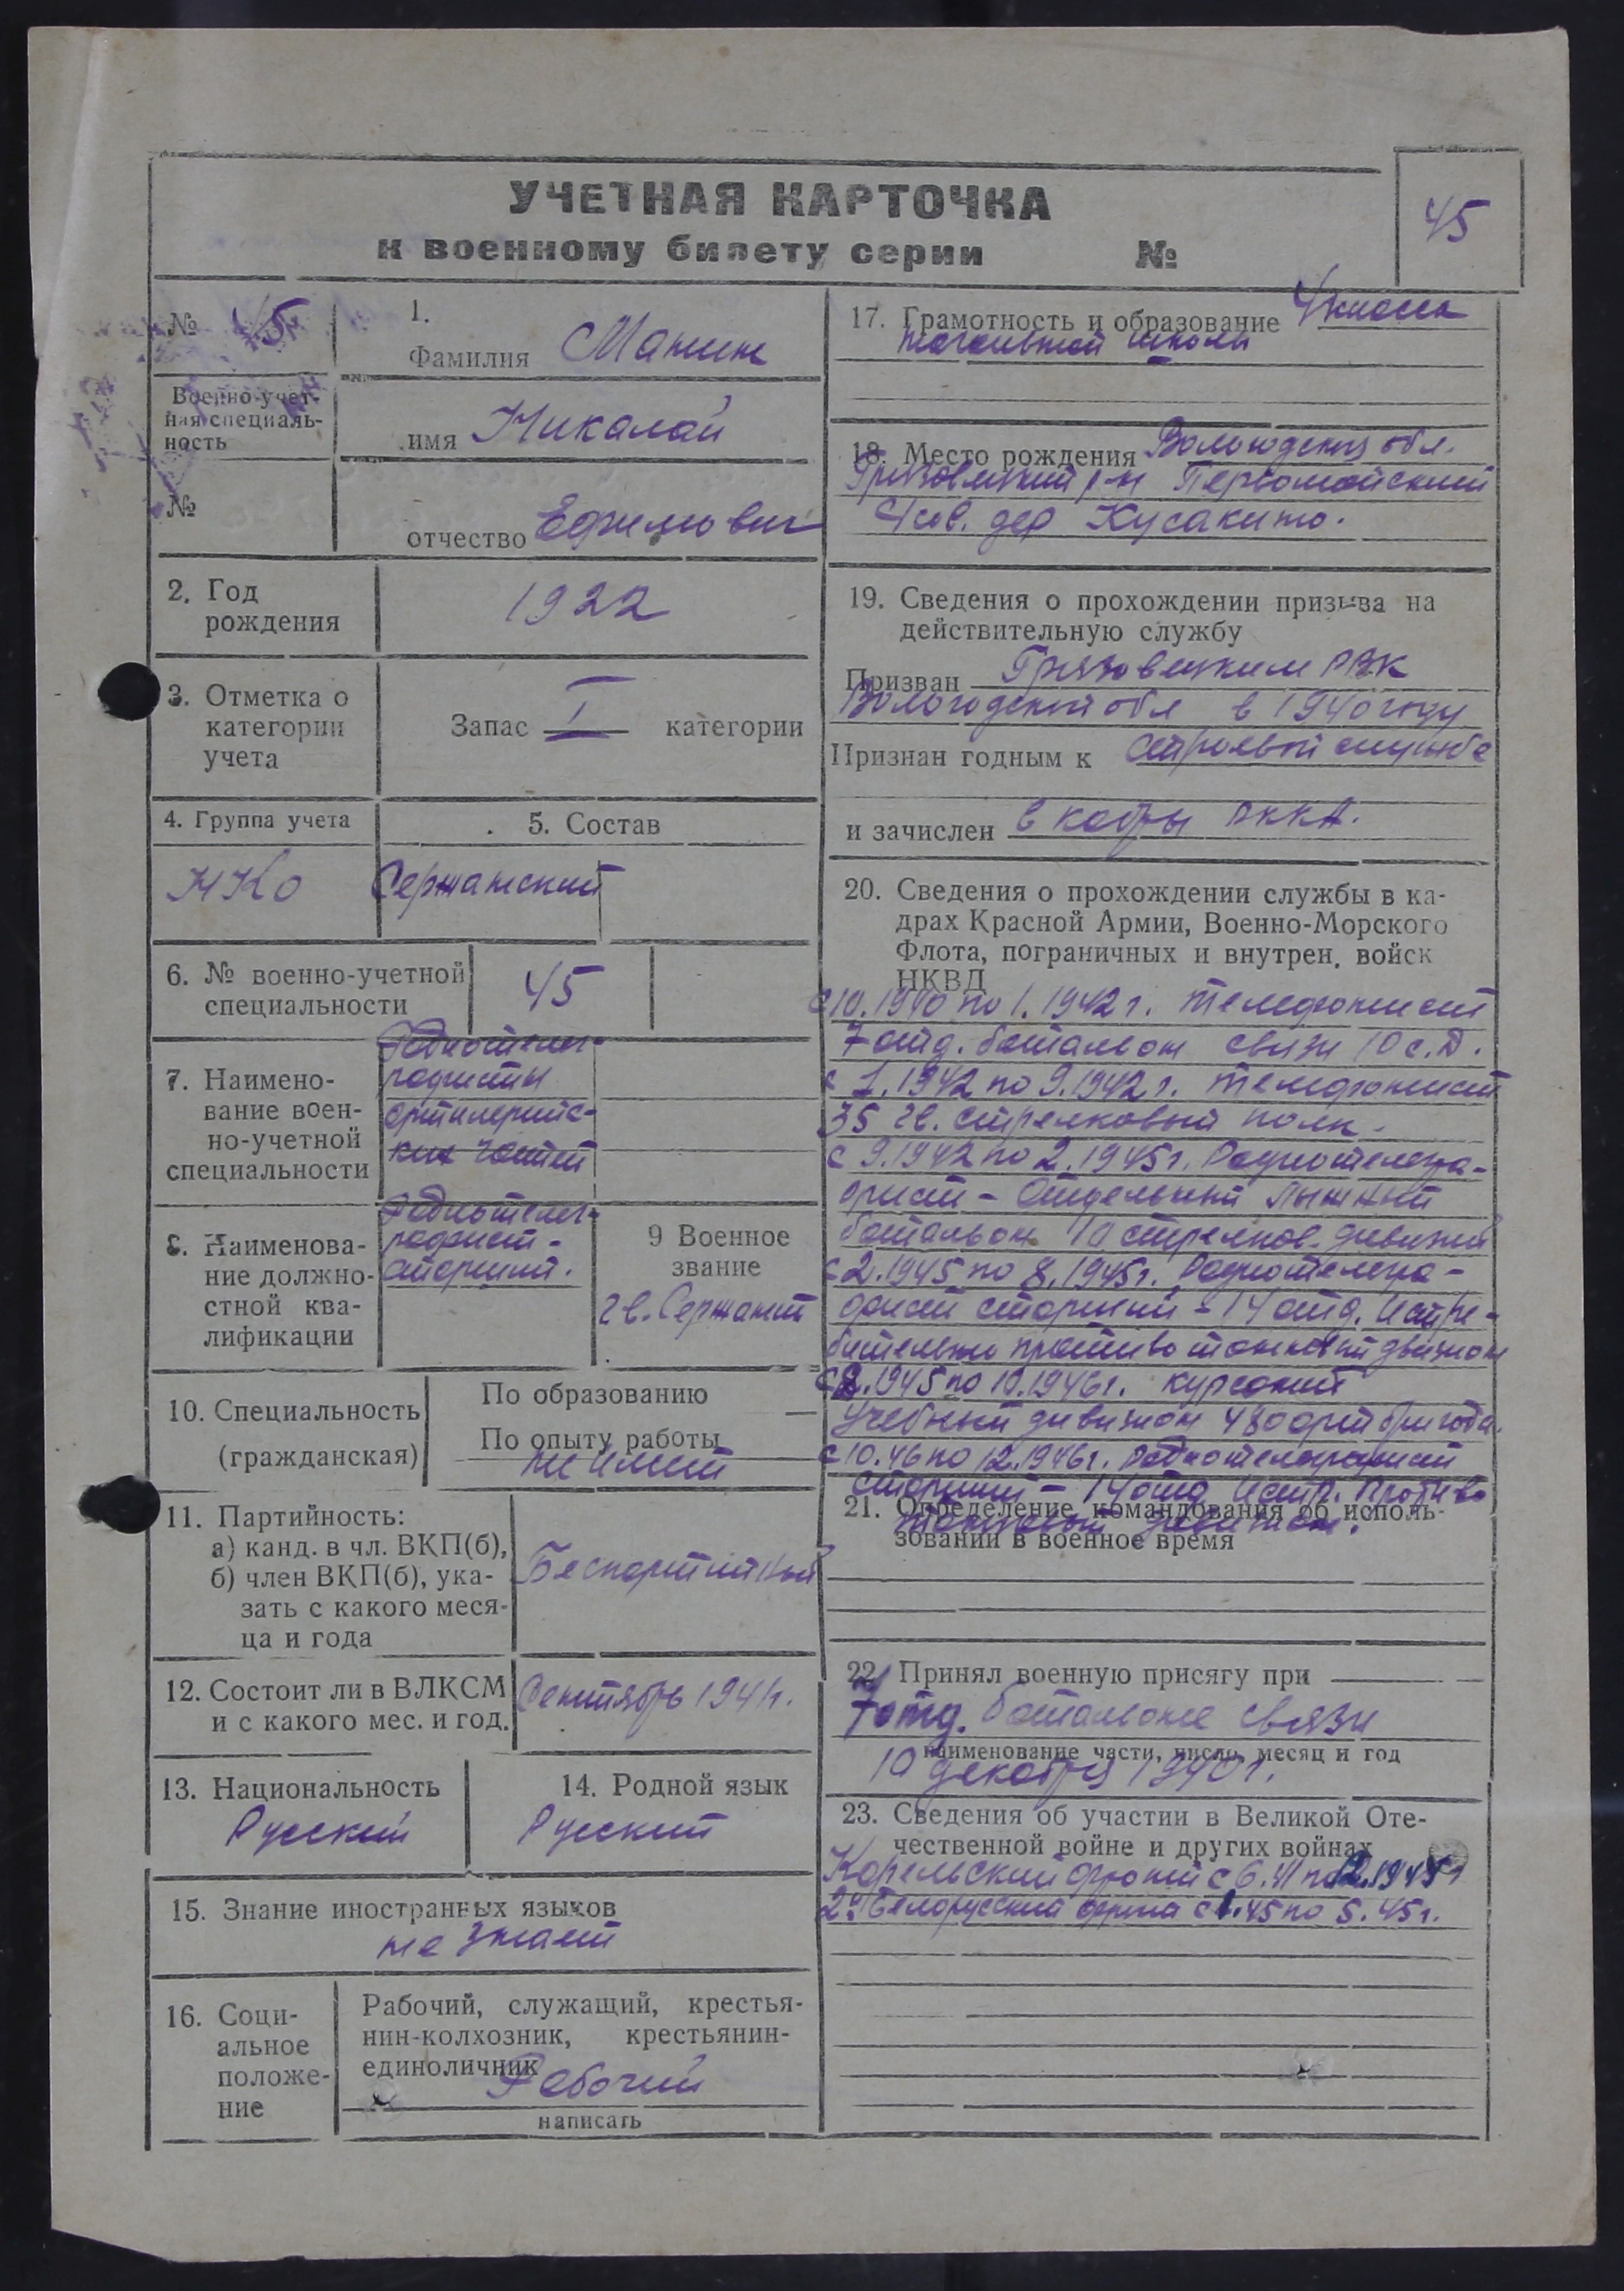 УЧЕТНАЯ КАРТОЧКА
к военному билету серии №
45
№ 45
Военно-учет-
ная специаль-
ность
№
1.
Фамилия Манин
имя Николай
отчество Ефимович
2. Год
рождения
1922
3. Отметка о
категории
учета
Запас I категории
4. Группа учета
5. Состав
НКО
Сержанский
6. № военно-учетной
специальности
45
7. Наимено-
вание воен-
но-учетной
специальности
Радиотелег-
рафисты
артилерийс-
ких частей
8. Наименова-
ние должно-
стной ква-
лификации
Радиотелег-
рафист-
старший.
9 Военное
звание
гв. Сержант
10. Специальность
(гражданская)
По образованию —
По опыту работы
не имеет
11. Партийность:
а) канд. в чл. ВКП(б),
б) член ВКП(б), ука-
зать с какого меся-
ца и года
Беспартийный
12. Состоит ли в ВЛКСМ
и с какого мес. и год.
Сентябрь 1941г.
13. Национальность
Русский
14. Родной язык
Русский
15. Знание иностранных языков
не знает
16. Соци-
альное
положе-
ние
Рабочий, служащий, крестья-
нин-колхозник, крестьянин-
единоличник
Рабочий
написать
17. Грамотность и образование 4 класса
начальной школы
18. Место рождения Вологодская обл.
Грязовецкий р-н Первомайский
с/сов. дер Кусакино.
19. Сведения о прохождении призыва на
действительную службу
Призван Грязовецким РВК
Вологодской обл в 1940 году
Признан годным к строевой службе
и зачислен в кадры РККА.
20. Сведения о прохождении службы в ка-
драх Красной Армии, Военно-Морского
Флота, пограничных и внутрен. войск
НКВД
с 10.1940 по 1.1942 г. телефонист
7 отд. батальон связи 10 с.д.
с 1.1942 по 9.1942 г. телефонист
35 гв. стрелковый полк.
с 9.1942 по 2.1945 г. Радиотелегра-
фист - Отдельный лыжный
батальон 10 стрелков. дивизии
с 2.1945 по 8.1945 г. Радиотелегра-
фист старший - 14 отд. Истре-
бительно противотанковый дивизион
с 8.1945 по 10.1946 г. курсант
Учебный дивизион 480 арт бригада.
с 10.46 по 12.1946 г. Радиотелеграфист
старший - 14 отд Истр. Противо
танковый дивизион.
21. Определение командования об исполь-
зовании в военное время
22. Принял военную присягу при
7 отд. батальоне связи
наименование части, число, месяц и год
10 декабря 1940 г.
23. Сведения об участии в Великой Оте-
чественной войне и других войнах
Карельский фронт с 6.41 по 12.1944 г
2й Белорусский фронт с 1.45 по 5.45 г.